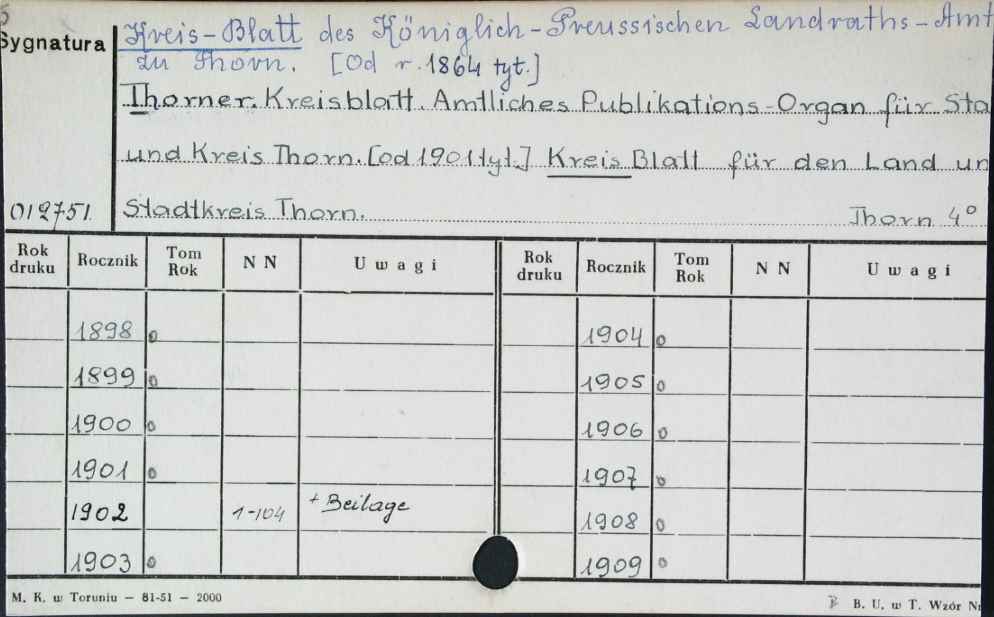 Sygnatura
Kreis-Blatt des Königlich-Preussischen Landraths-Amt
zu Thorn. [Od r. 1864 tyt.]
Thorner Kreisblatt. Amtliches Publikations-Organ für Sta
und Kreis Thorn. [od 1901 tyt.] Kreis Blatt für den Land un
012751 Stadtkreis Thorn. Thorn 4°
Rok druku Rocznik Tom Rok NN Uwagi Rok druku Rocznik Tom Rok NN Uwagi
1898 o 1904 o
1899 o 1905 o
1900 o 1906 o
1901 o 1907 o
1902 1-104 + Beilage 1908 o
1903 o 1909 o
M. K. w Toruniu — 81-51 — 2000 B. U. w T. Wzór Nr